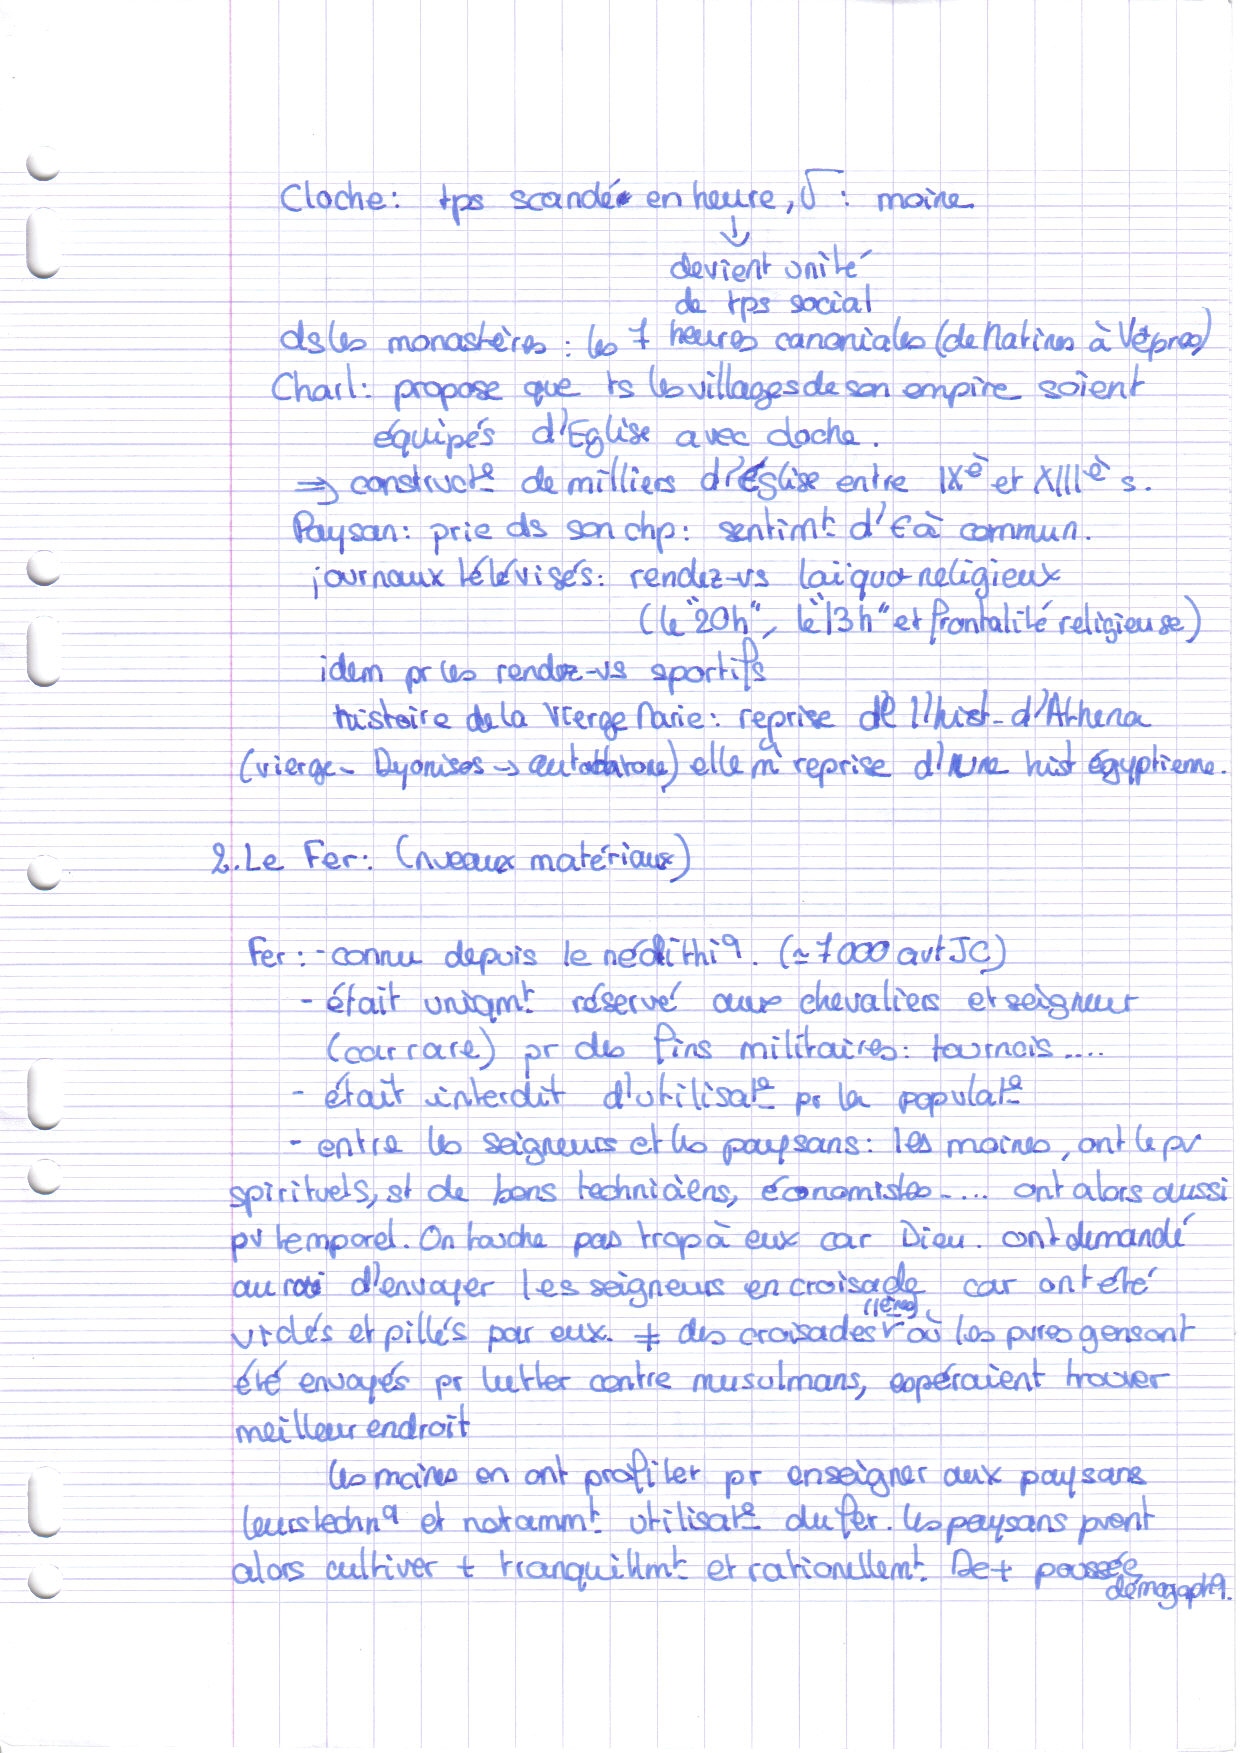 Cloche: tps scandé en heure, √ : moine
↓
devient unité
de tps social
ds les monastères : les 7 heures canoniales (de Matines à Vêpres)
Charl: propose que ts les villages de son empire soient
équipés d'Eglise avec cloche.
⇒ construct° de milliers d'Église entre IXè et XIIIè s.
Paysan: prie ds son chp: sentimt d'ê à commun.
journaux télévisés: rendez-vs laïquo-religieux
(le "20h", le "13h" et frontalité religieuse)
idem pr les rendez-vs sportifs
histoire de la Vierge Marie: reprise de l'hist. d'Athena
(vierge - Dyonisos → ) elle m̂ reprise d'une hist égyptienne.
2. Le Fer: (nveaux matériaux)
Fer: - connu depuis le néolithiq. (≃ 7000 avt JC)
- était uniqmt réservé aux chevaliers et seigneur
(car rare) pr des fins militaires: tournois....
- était interdit d'utilisat° pr la populat°
- entre les seigneurs et les paysans: les moines, ont le pv
spirituels, st de bons techniciens, économistes.... ont alors aussi
pv temporel. On touche pas trop à eux car Dieu. ont demandé
au roi d'envoyer les seigneurs en croisade car ont été
violés et pillés par eux. ≠ des croisades où les pvres gens ont
(1ères)
été envoyés pr lutter contre musulmans, espéraient trouver
meilleur endroit
les moines en ont profiter pr enseigner aux paysans
leurs techniq et notammt utilisat° du fer. les paysans pvent
alors cultiver + tranquillmt et rationellemt. De + poussée
démographiq.